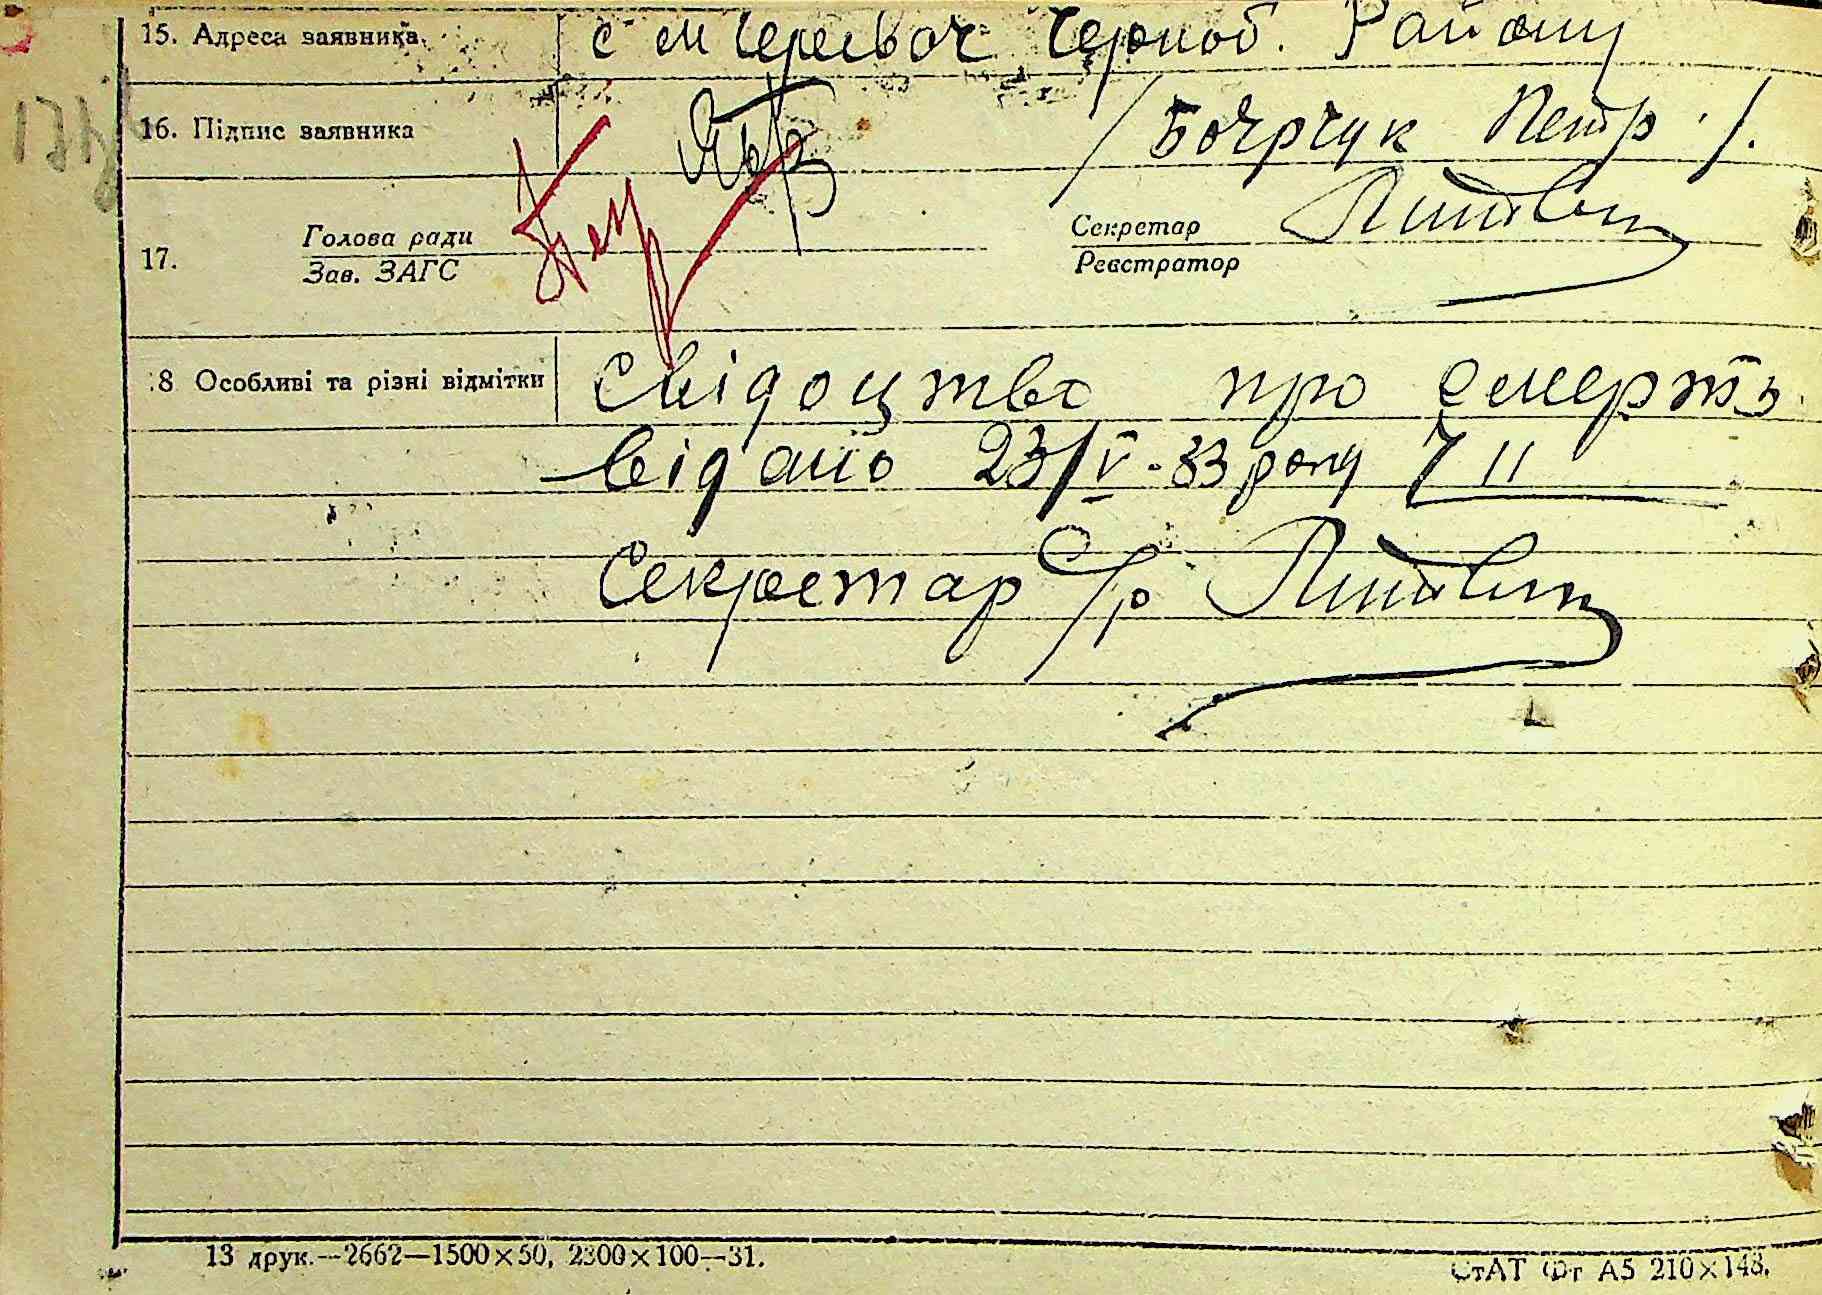 15. Адреса заявника. с Черевач Чорноб. Району
16. Підпис заявника / Бочрчук Петр /.
17. Голова ради Секретар
Зав. ЗАГС Реєстратор
18 Особливі та різні відмітки Свідоцтво про смерть
відано 23/V-33 року 7 11
Секретар С/р
13 друк.—2662—1500×50, 2300×100—31.
СтАТ Фт А5 210×148.